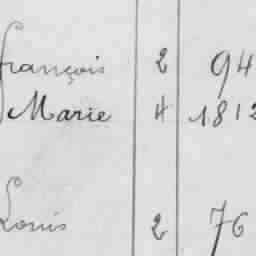 françois 2 94
Marie 4 1812
Louis 2 76